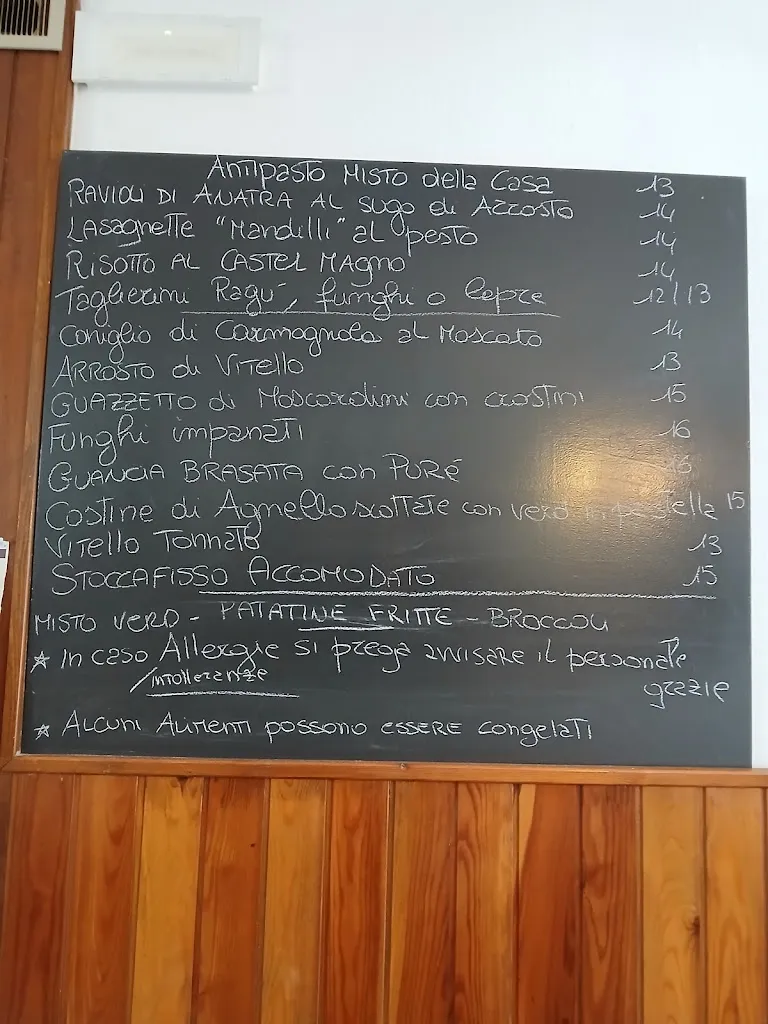 Antipasto Misto della Casa 13
RAVIOLI DI ANATRA AL sugo di Arrosto 14
Lasagnette "Mandilli" al pesto 14
RISOTTO AL CASTEL MAGNO 14
Taglierini Ragù, funghi o lepre 12/13
Coniglio di Carmagnola al Moscato 14
ARROSTO di VITELLO 13
GUAZZETTO di Moscardini con crostini 15
Funghi impanati 16
GUANCIA BRASATA con PURÉ
Costine di Agnello scottate con verd in pastella 15
VITELLO TONNATO 13
STOCCAFISSO ACCOMODATO 15
MISTO VERD - PATATINE FRITTE - BROCCOLI
* In caso Allergie si prega avvisare il personale
/intolleranze grazie
* ALCUNI ALIMENTI possono ESSERE congelati